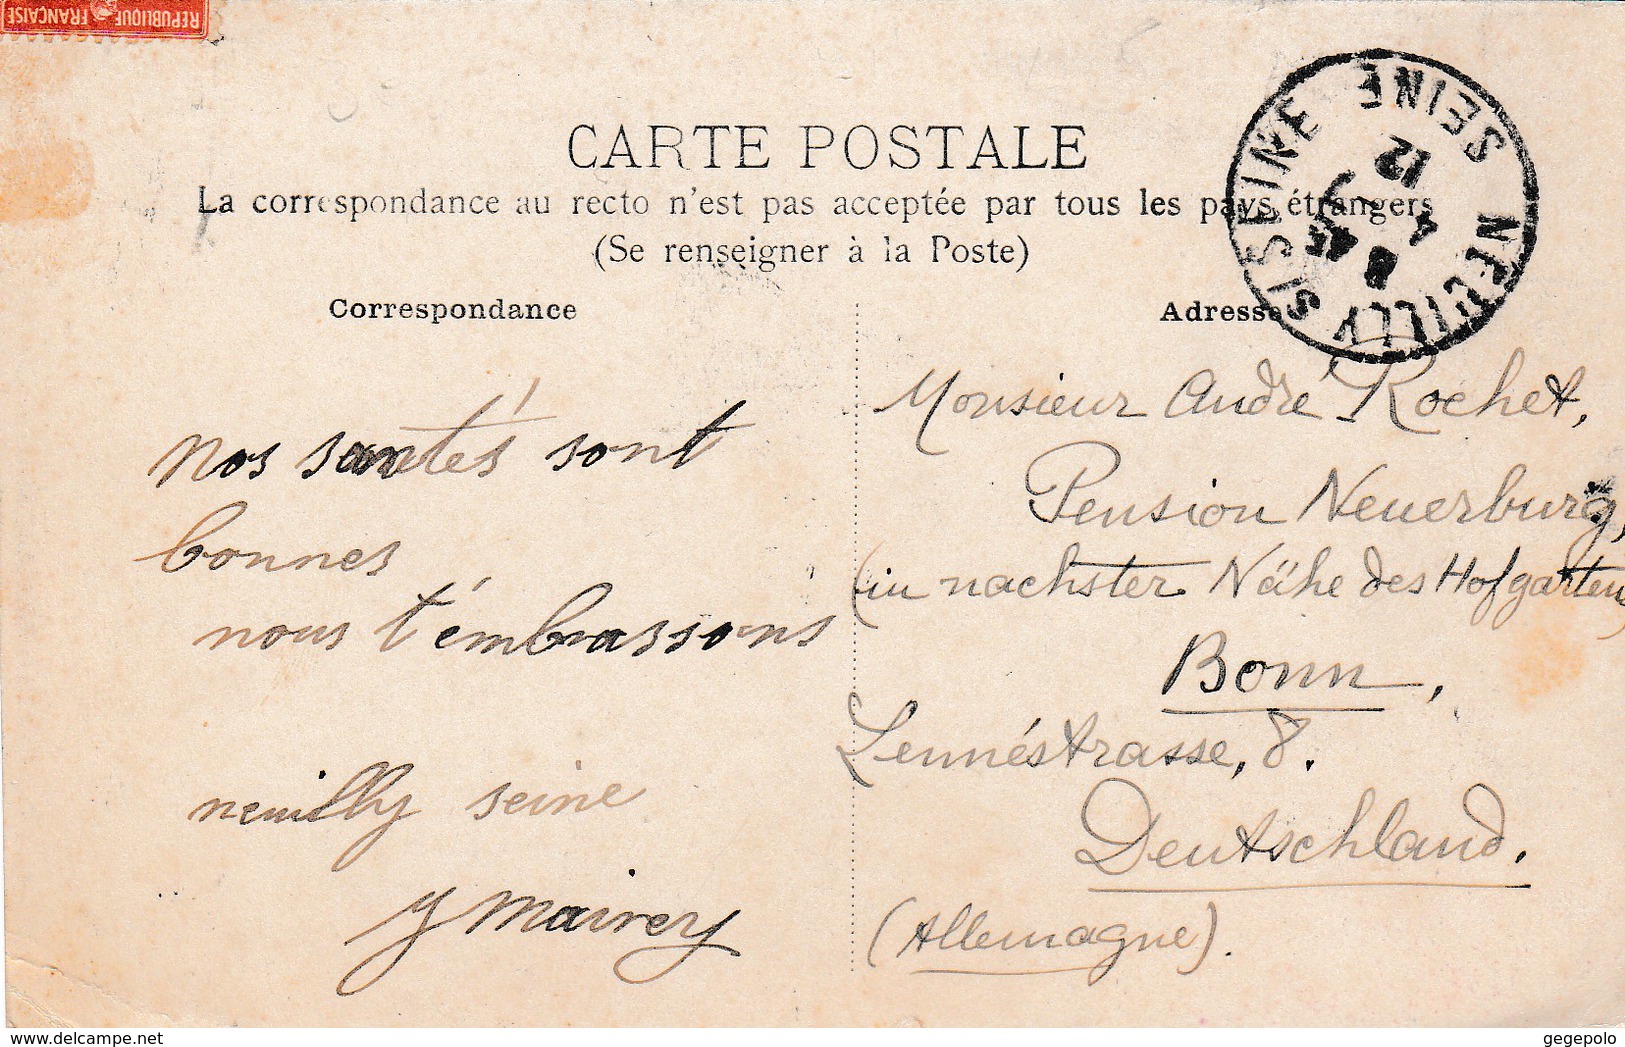 REPUBLIQUE FRANÇAISE
CARTE POSTALE
La correspondance au recto n'est pas acceptée par tous les pays étrangers
(Se renseigner à la Poste)
Correspondance
nos santés sont
bonnes
nous t'embrassons
neuilly seine
y mairey
Adresse
NEUILLY S/SEINE SEINE
8 45
4
12
Monsieur André Rochet,
Pension Neuerburg,
(in nachster Nähe des Hofgarten)
Bonn,
Lennéstrasse, 8.
Deutschland.
(Allemagne).
delcampe.net
gegepolo